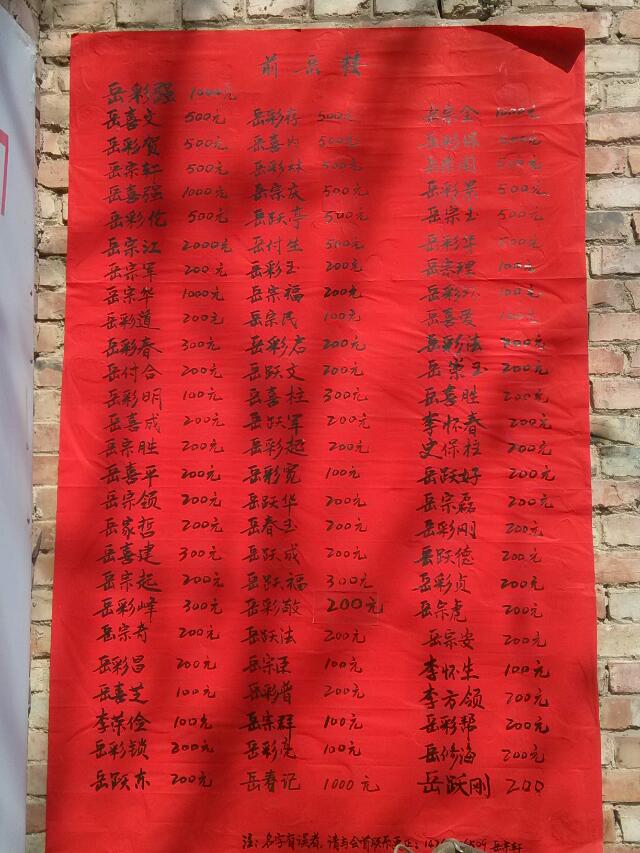 前岳楼
岳彩强 1000元
岳喜文 500元 岳彩存 500元 岳宗全 1000元
岳彩贺 500元 岳喜内 500元 岳彩保 500元
岳宗轩 500元 岳彩林 500元 岳宗国 500元
岳喜强 1000元 岳宗庆 500元 岳彩景 500元
岳彩伦 500元 岳跃亭 500元 岳宗玉 500元
岳宗江 2000元 岳付生 500元 岳彩华 500元
岳宗军 200元 岳彩玉 200元 岳宗理 100元
岳宗华 1000元 岳宗福 200元 岳彩 100元
岳彩道 200元 岳宗民 100元 岳喜爱 100元
岳彩春 300元 岳彩启 200元 岳彩法 200元
岳付合 200元 岳跃文 200元 岳荣玉 200元
岳彩明 100元 岳喜柱 300元 岳喜胜 200元
岳喜成 200元 岳跃军 200元 李怀春 200元
岳宗胜 200元 岳彩起 200元 史保柱 200元
岳喜平 200元 岳彩宽 100元 岳跃好 200元
岳宗领 200元 岳跃华 200元 岳宗磊 200元
岳家哲 200元 岳春玉 200元 岳彩刚 200元
岳喜建 300元 岳跃成 200元 岳跃德 200元
岳宗起 200元 岳跃福 300元 岳彩贞 200元
岳彩峰 300元 岳彩敬 200元 岳宗虎 200元
岳宗奇 200元 岳跃法 200元 岳宗安 200元
岳彩昌 200元 岳宗臣 100元 李怀生 100元
岳喜芝 100元 岳彩普 200元 李方领 200元
李荣俭 100元 岳宗群 100元 岳彩帮 200元
岳彩锁 200元 岳彩亮 100元 岳修海 200元
岳跃东 200元 岳春记 1000元 岳跃刚 200
注:名字有误者,请与会首联系更正: